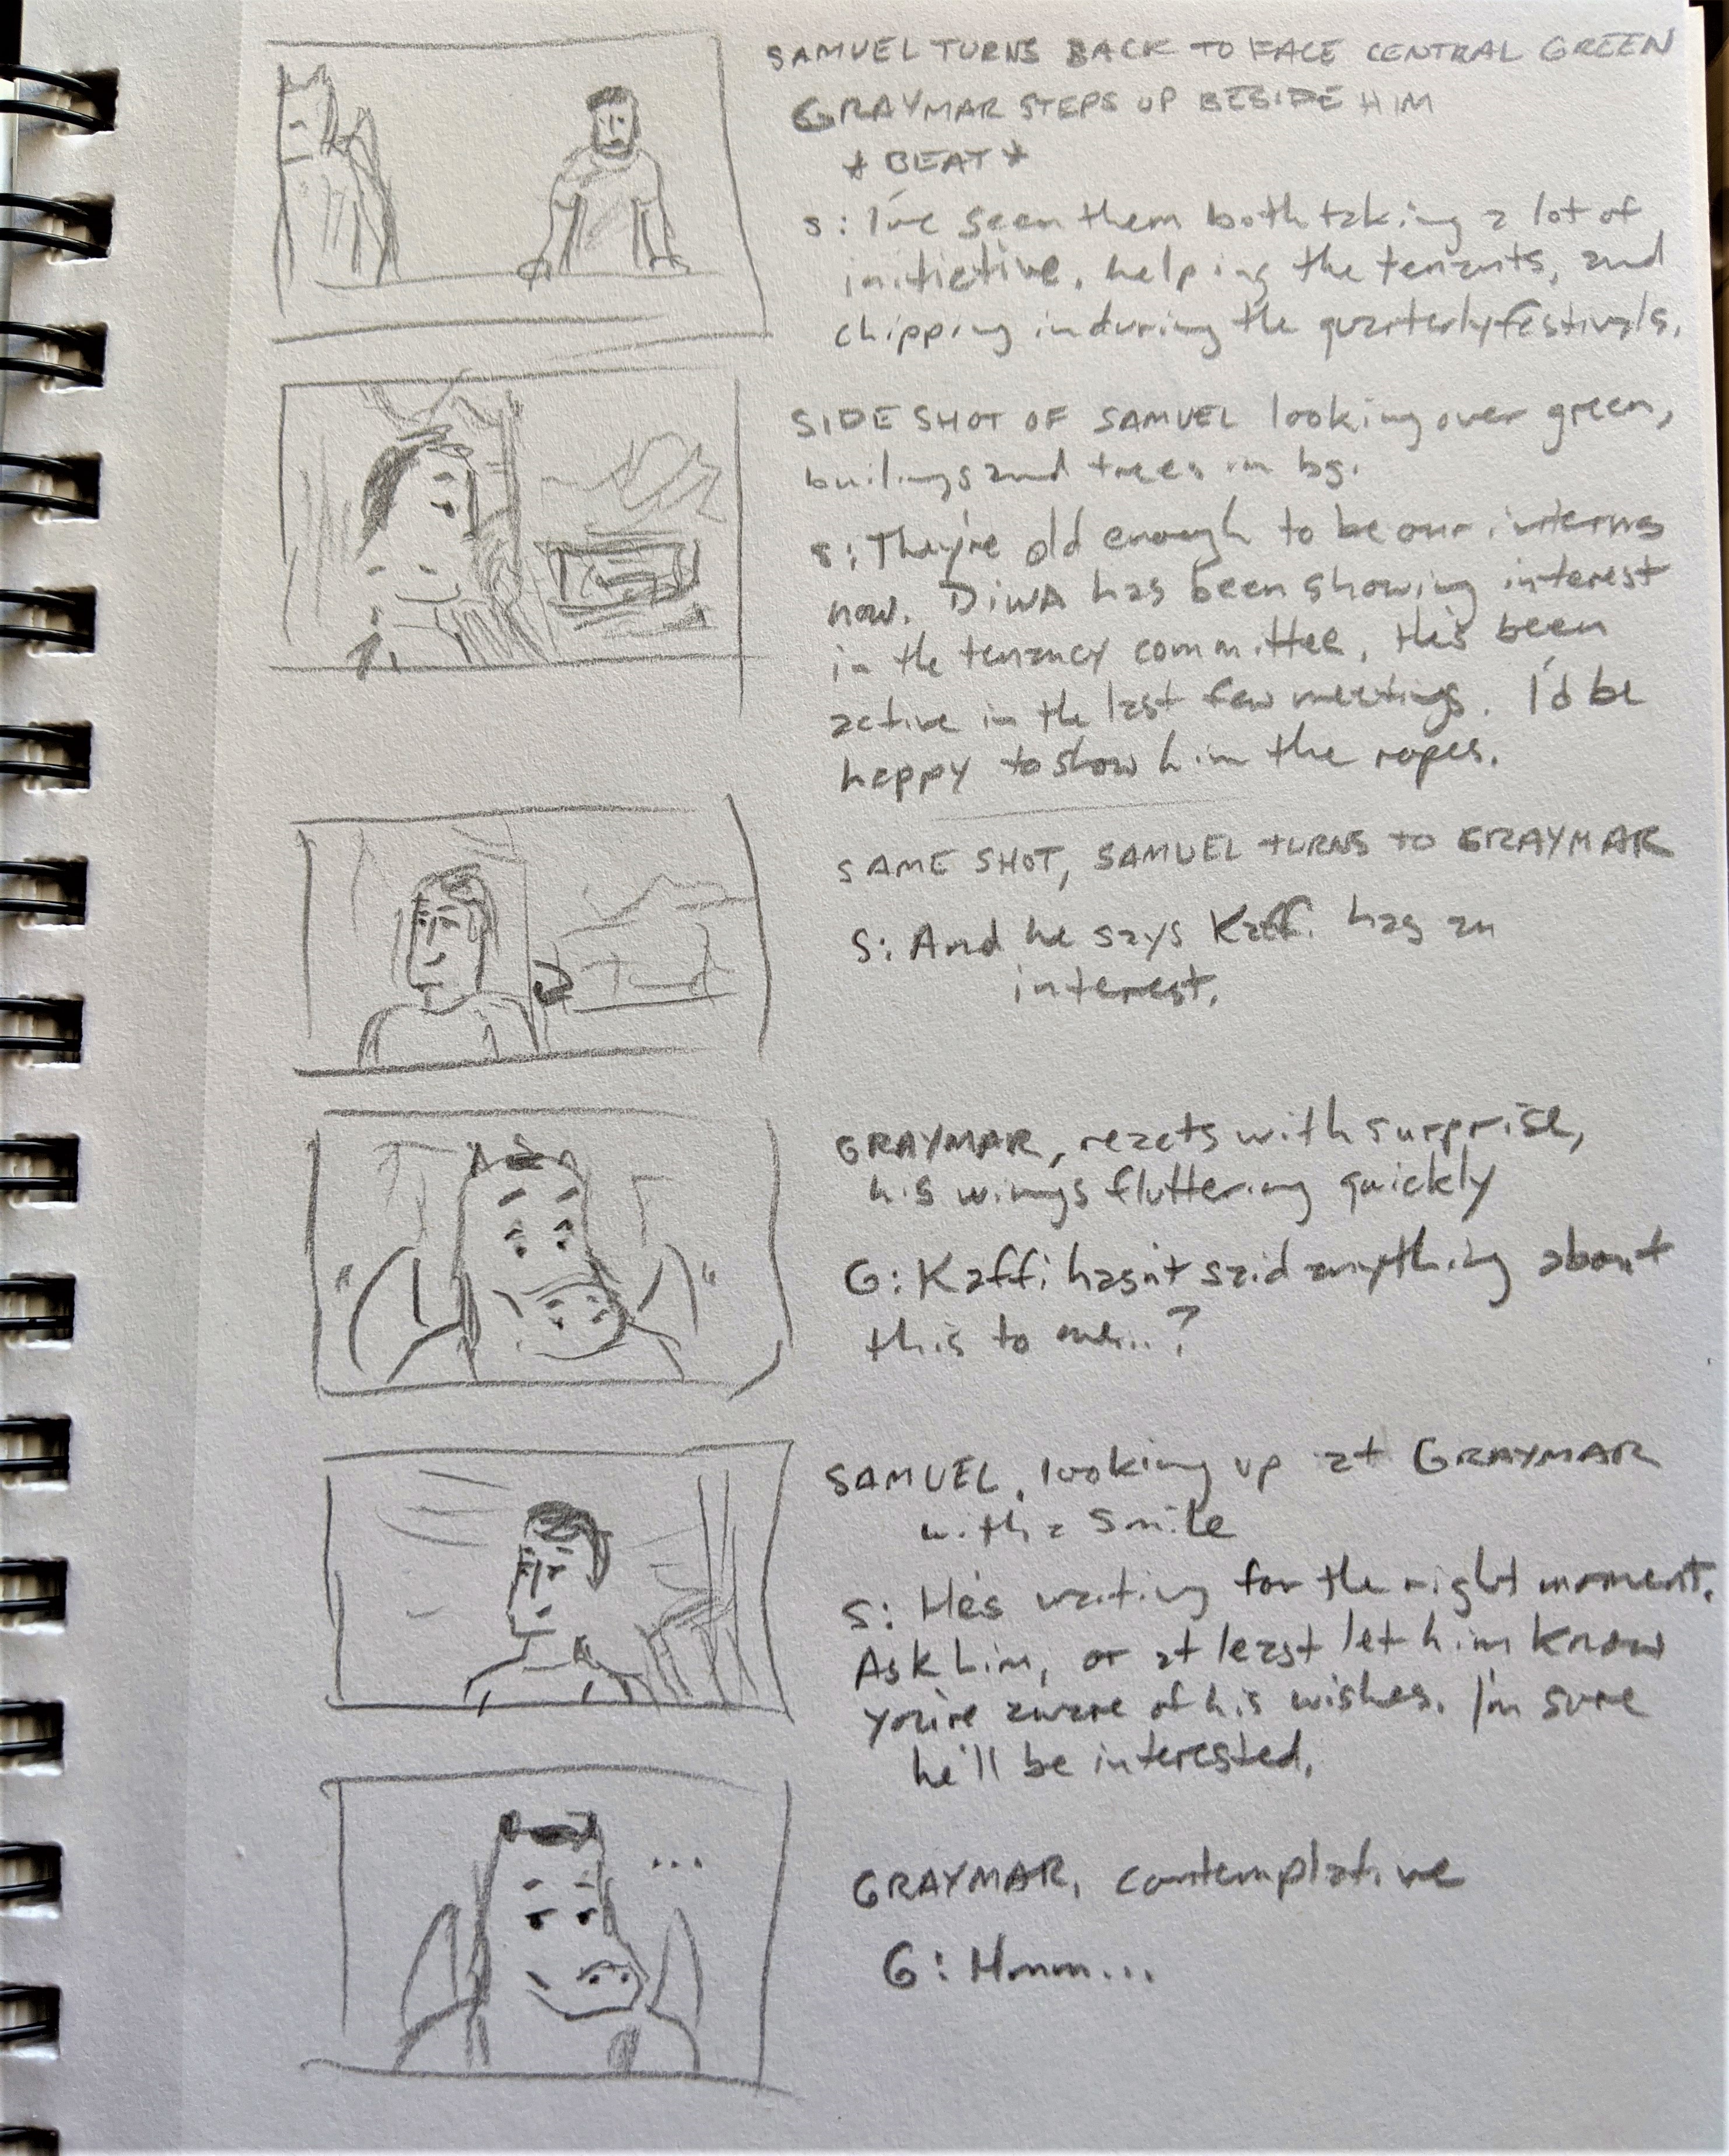 SAMUEL TURNS BACK TO FACE CENTRAL GREEN
GRAYMAR STEPS UP BESIDE HIM
* BEAT *
S: I've seen them both taking a lot of
initietive, helping the tenants, and
chipping in during the quarterly festivals.
SIDE SHOT OF SAMUEL looking over green,
builings and trees in bg.
S: They're old enough to be our interns
now. DiWA has been showing interest
in the tenancy committee, He's been
active in the last few meetings. I'd be
happy to show him the ropes.
SAME SHOT, SAMUEL TURNS TO GRAYMAR
S: And he says Kaffi has an
interest.
GRAYMAR, reacts with surprise,
his wings fluttering quickly
G: Kaffi hasn't said anything about
this to me..?
SAMUEL, looking up at GRAYMAR
with a smile
S: He's waiting for the right moment.
Ask him, or at least let him know
you're aware of his wishes. I'm sure
he'll be interested.
...
GRAYMAR, contemplative
G: Hmm...